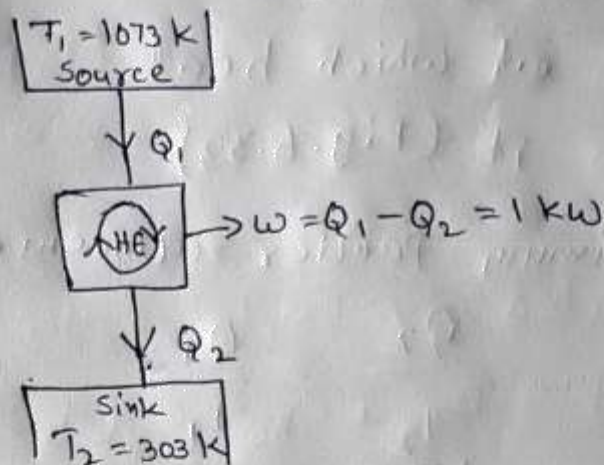 T₁ = 1073 K
Source
Q₁
HE
→ W = Q₁ - Q₂ = 1 KW
Q₂
Sink
T₂ = 303 K